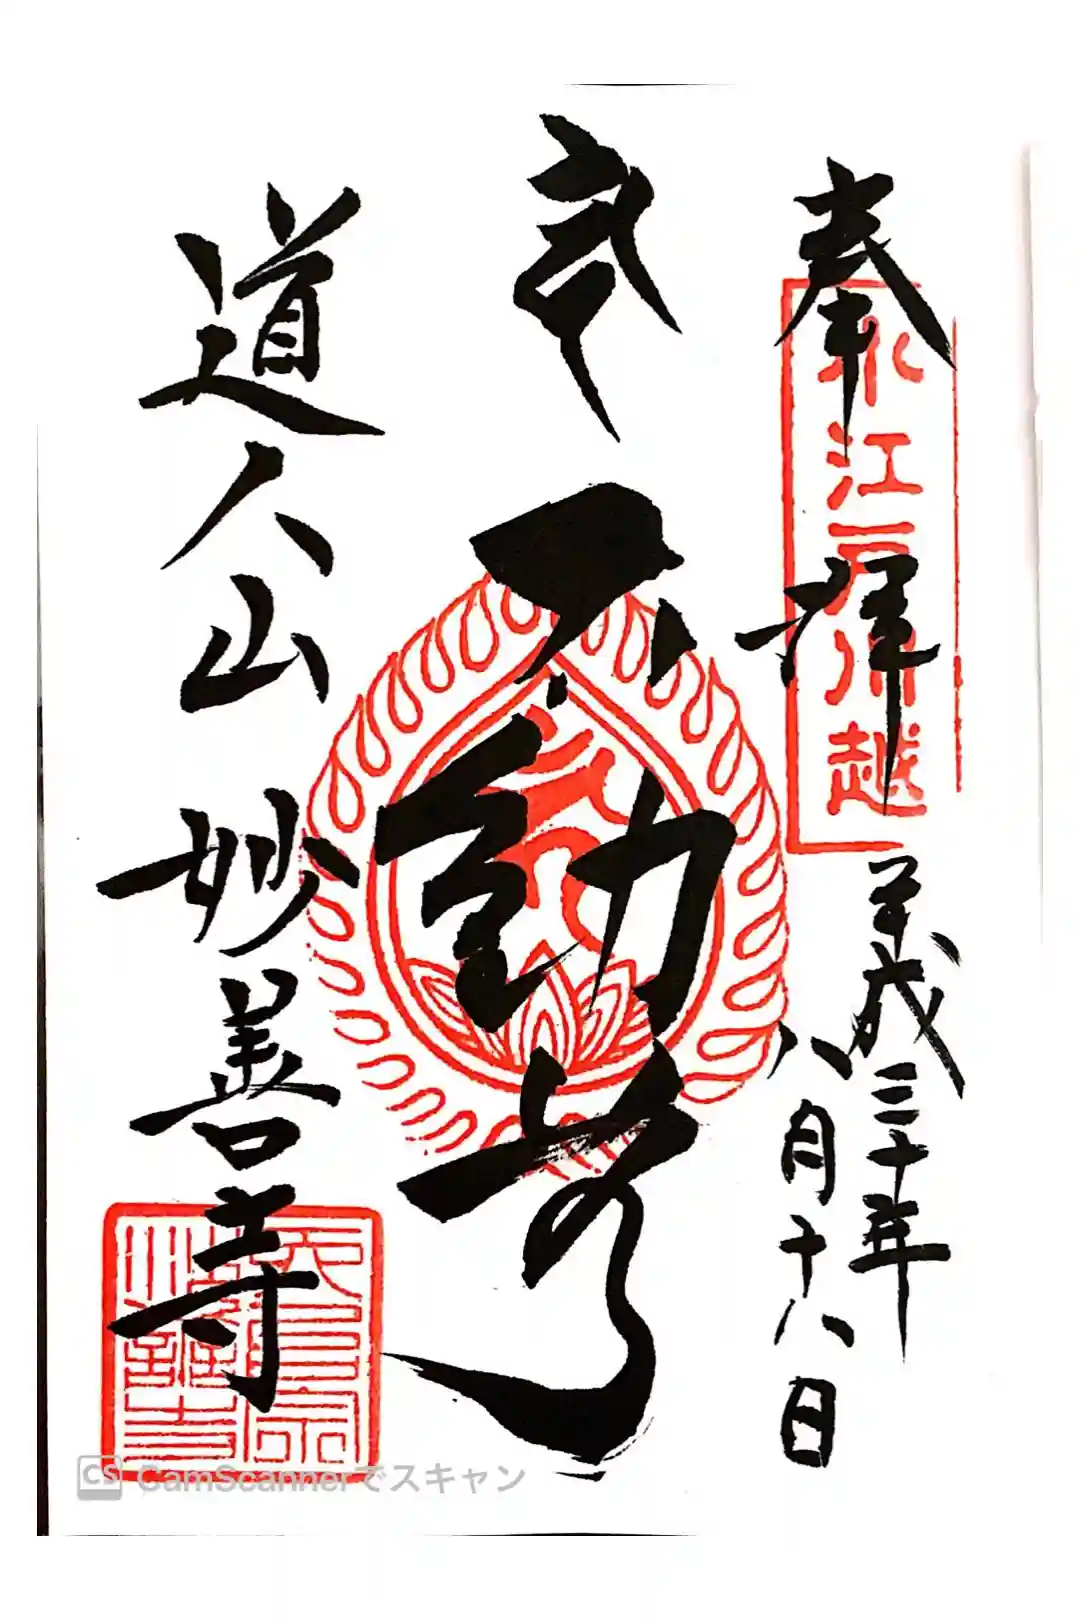 奉拝
小江戸川越
平成三十年
八月十八日
不動尊
道人山 妙善寺
天台宗
CS CamScannerでスキャン